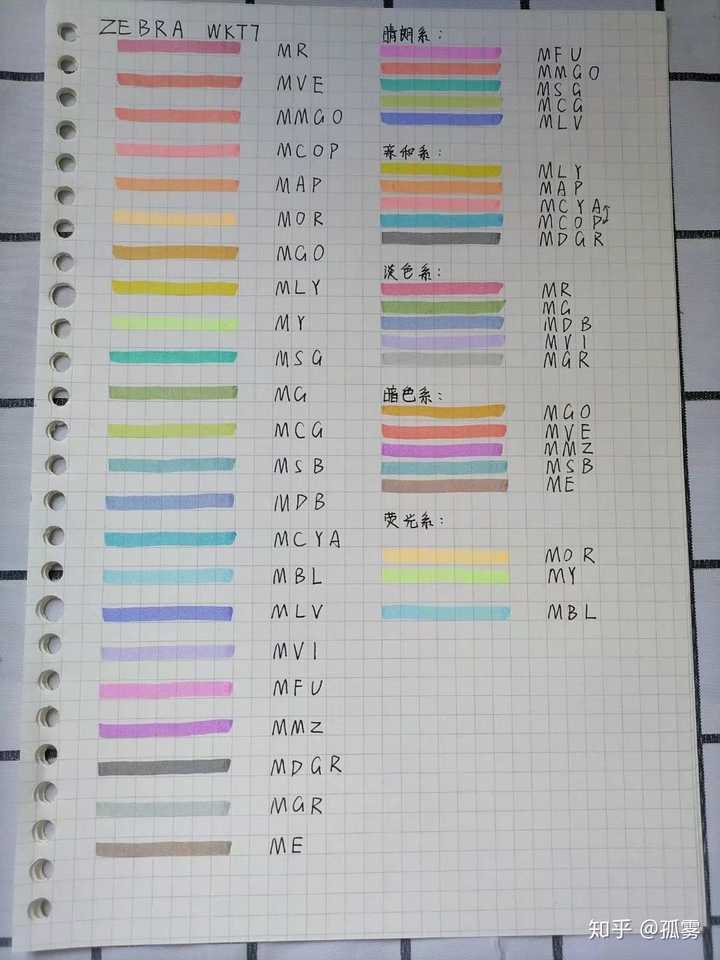 ZEBRA WKT7
MR
MVE
MMGO
MCOP
MAP
MOR
MGO
MLY
MY
MSG
MG
MCG
MSB
MDB
MCYA
MBL
MLV
MVI
MFU
MMZ
MDGR
MGR
ME
晴朗系：
MFU
MMGO
MSG
MCG
MLV
亲和系：
MLY
MAP
MCYA
MCOP
MDGR
淡色系：
MR
MG
MDB
MVI
MGR
暗色系：
MGO
MVE
MMZ
MSB
ME
荧光系：
MOR
MY
MBL
知乎 @孤雾